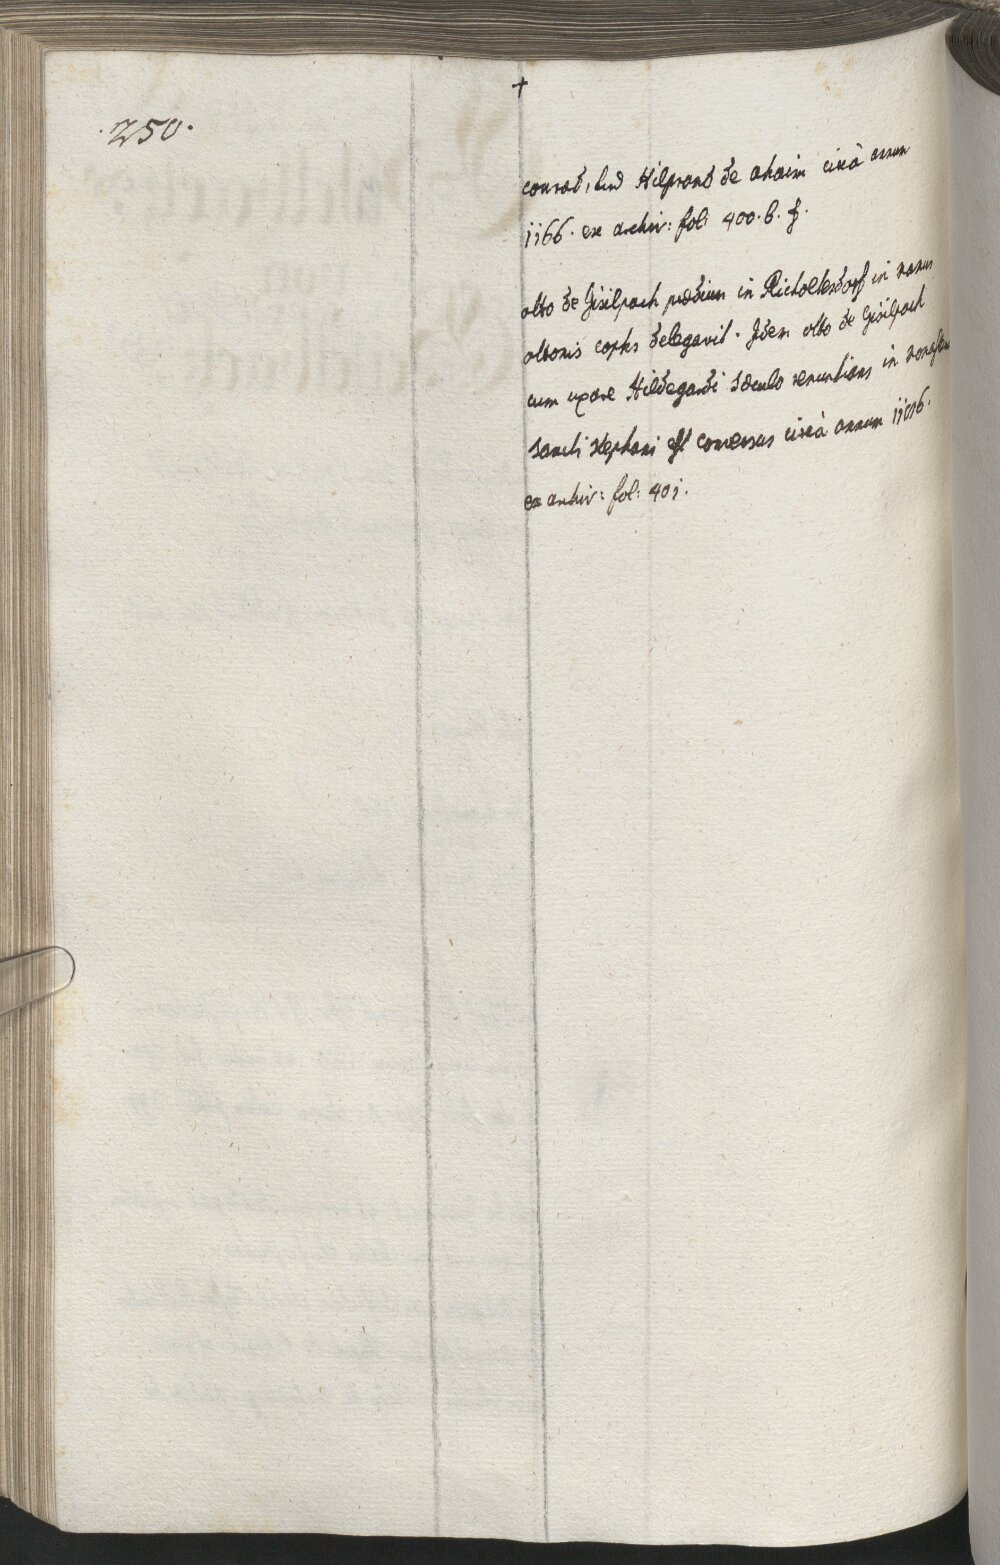 +
·250·
conrad, und Hilprand de ahaim circà annum
1166. ex archiv: fol: 400. b. f.
olto de Gisilpach prædium in Richoltesdorf in manus
oltonis coptes delegavit. Idem olto de Gisilpach
cum uxore Hildegardi sæculo renuntians in
sancti stephani est conversus circà annum
ex archiv: fol: 401.